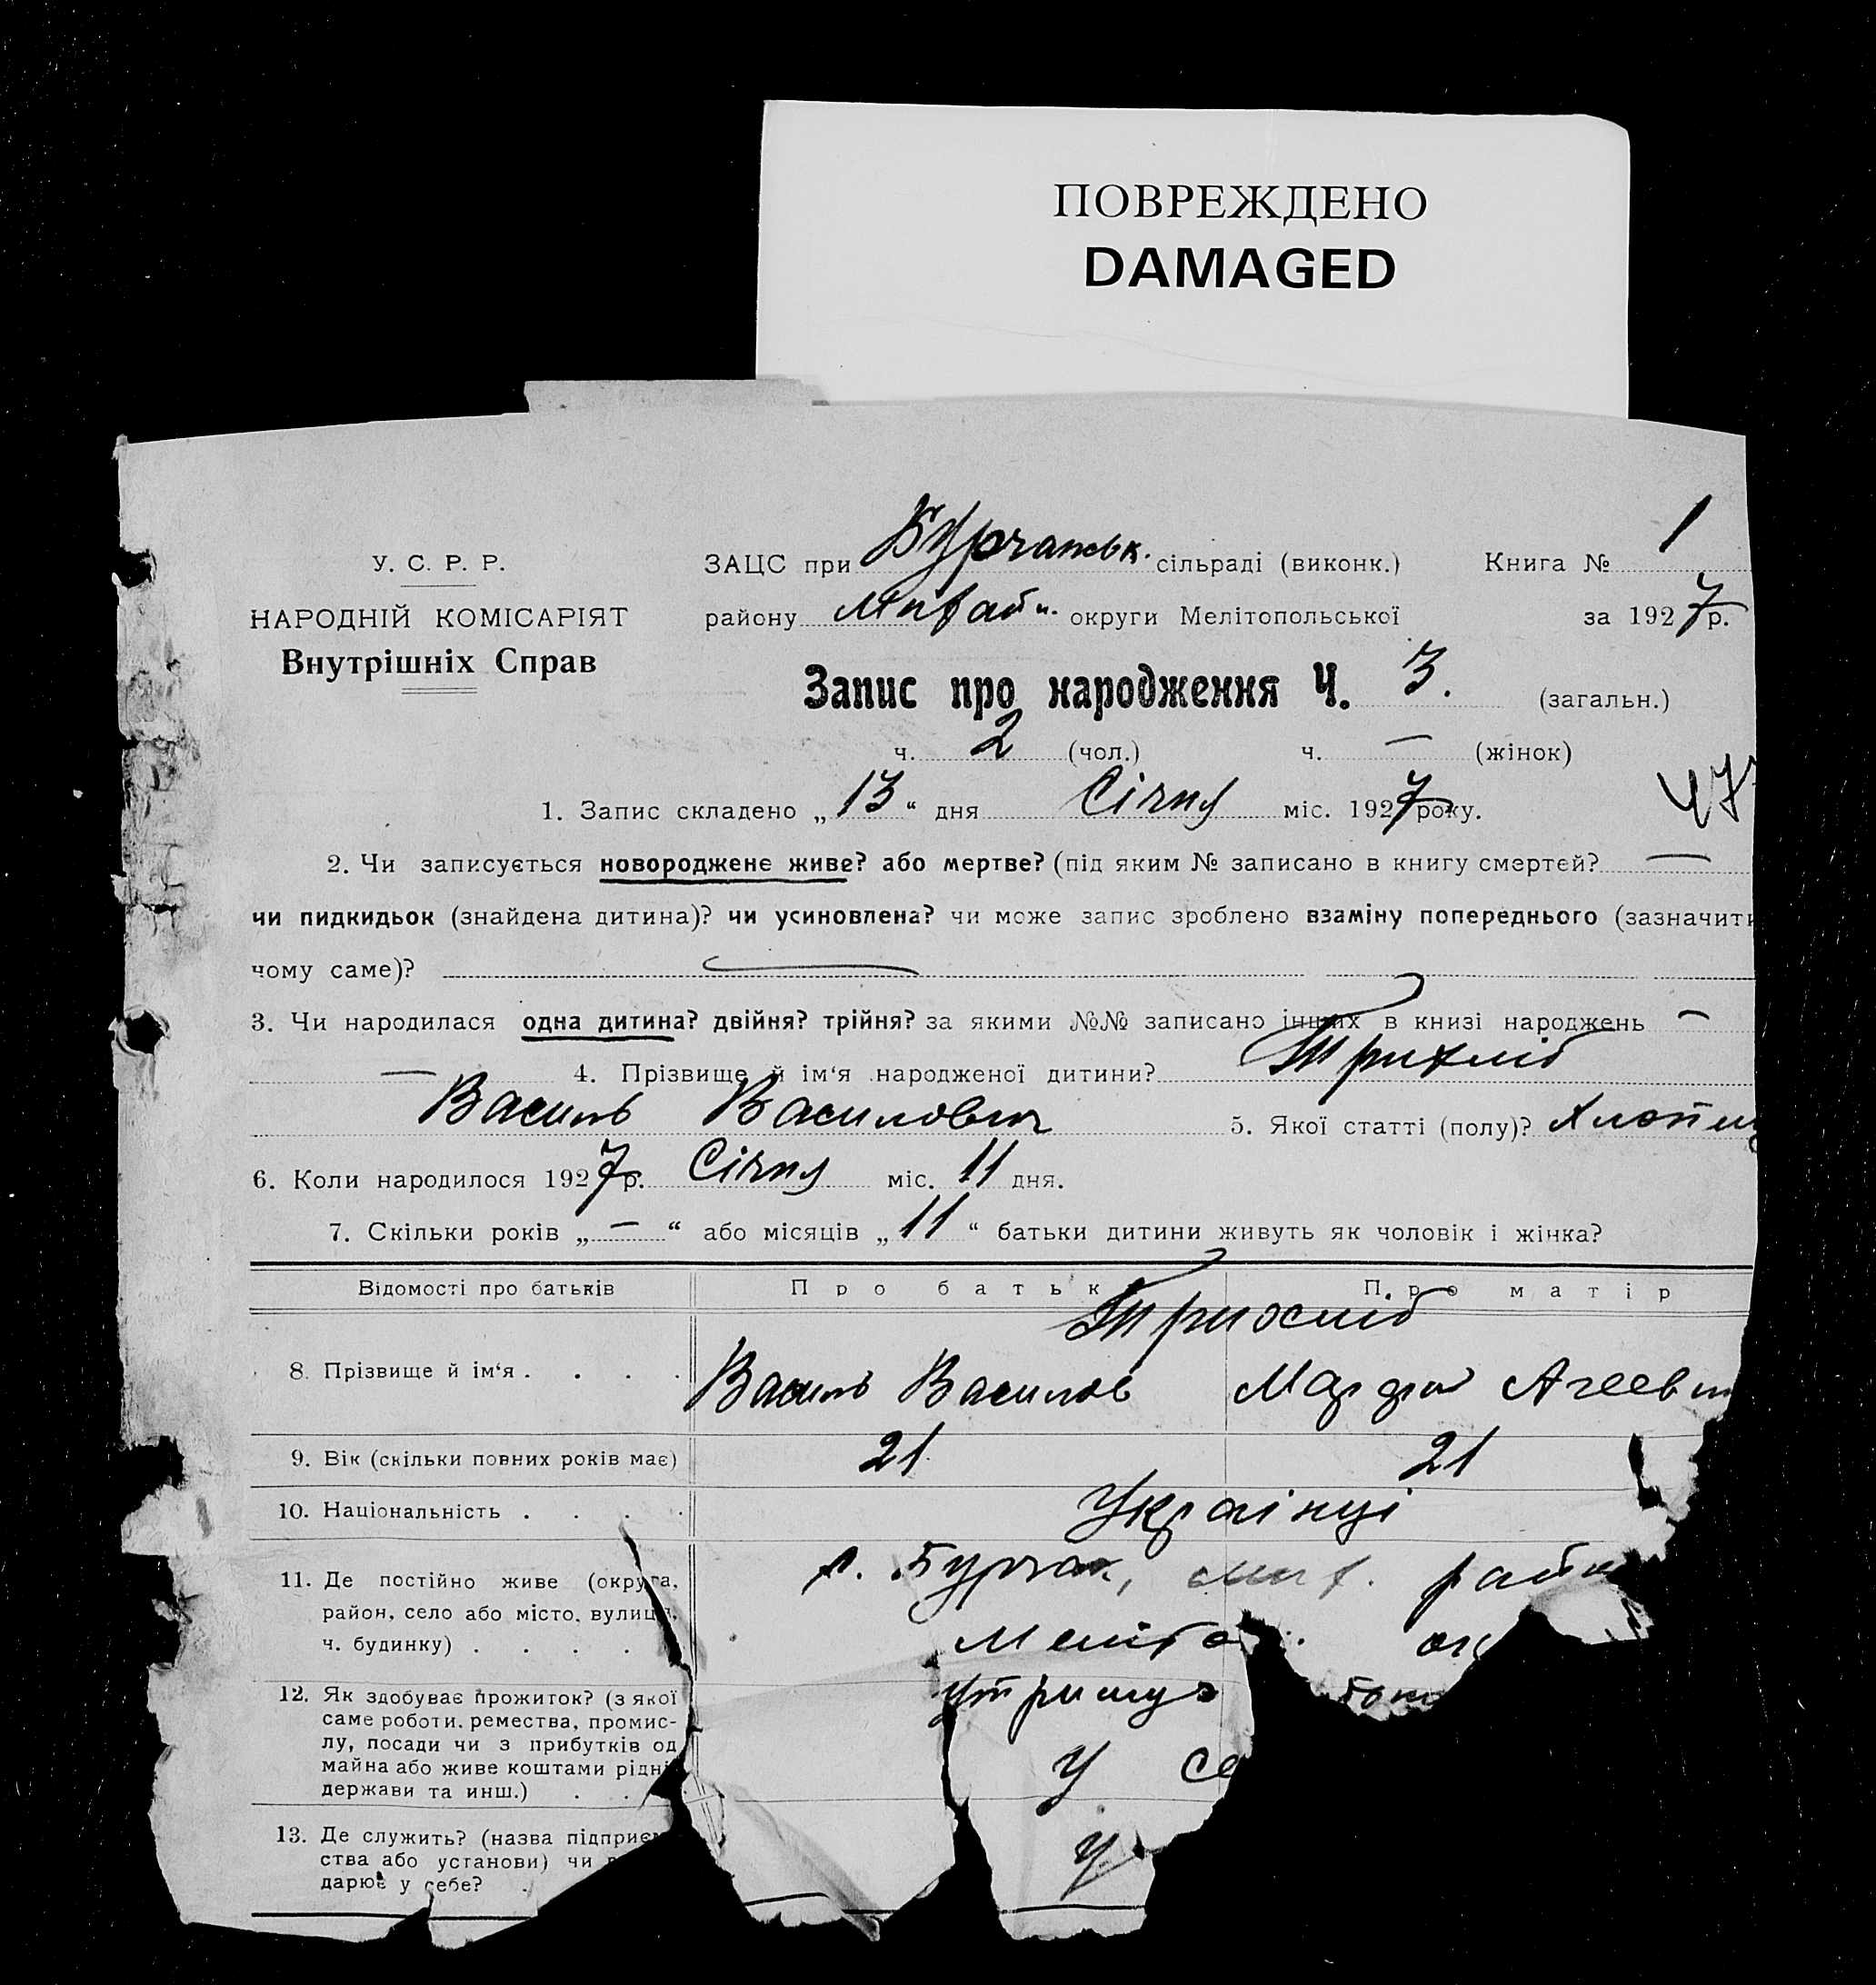 ПОВРЕЖДЕНО
DAMAGED
У. С. Р. Р.
НАРОДНІЙ КОМІСАРІЯТ
Внутрішніх Справ
ЗАЦС при Бурчатськ. сільраді (виконк.) Книга № 1
району округи Мелітопольської за 1927 р.
Запис про народження Ч. 3. (загальн.)
ч. 2 (чол.) ч. — (жінок)
1. Запис складено „13“ дня Січня міс. 1927 року.
47
2. Чи записується новороджене живе? або мертве? (під яким № записано в книгу смертей? —
чи пидкидьок (знайдена дитина)? чи усиновлена? чи може запис зроблено взаміну попереднього (зазначити
чому саме)? —
3. Чи народилася одна дитина? двійня? трійня? за якими №№ записано інших в книзі народжень —
— 4. Прізвище й ім‘я народженої дитини? Трихліб
Василь Василович 5. Якої статті (полу)? Хлопець
6. Коли народилося 1927 р. Січня міс. 11 дня.
7. Скільки років „—“ або місяців „11“ батьки дитини живуть як чоловік і жінка?
Відомості про батьків Про батьк Про матір
Трихліб
8. Прізвище й ім‘я . . . . Василь Василов Агеевн
9. Вік (скільки повних років має) 21 21
10. Національність . . . . Українці
11. Де постійно живе (округа, район, село або місто, вулиця, ч. будинку) . . . .
с. Бурчак, рай
Меліто
12. Як здобуває прожиток? (з якої
саме роботи, ремества, промис-
лу, посади чи з прибутків од
майна або живе коштами рідні
держави та инш.) . .
у се
13. Де служить? (назва підприєм
ства або установи) чи
дарює у себе? .
у